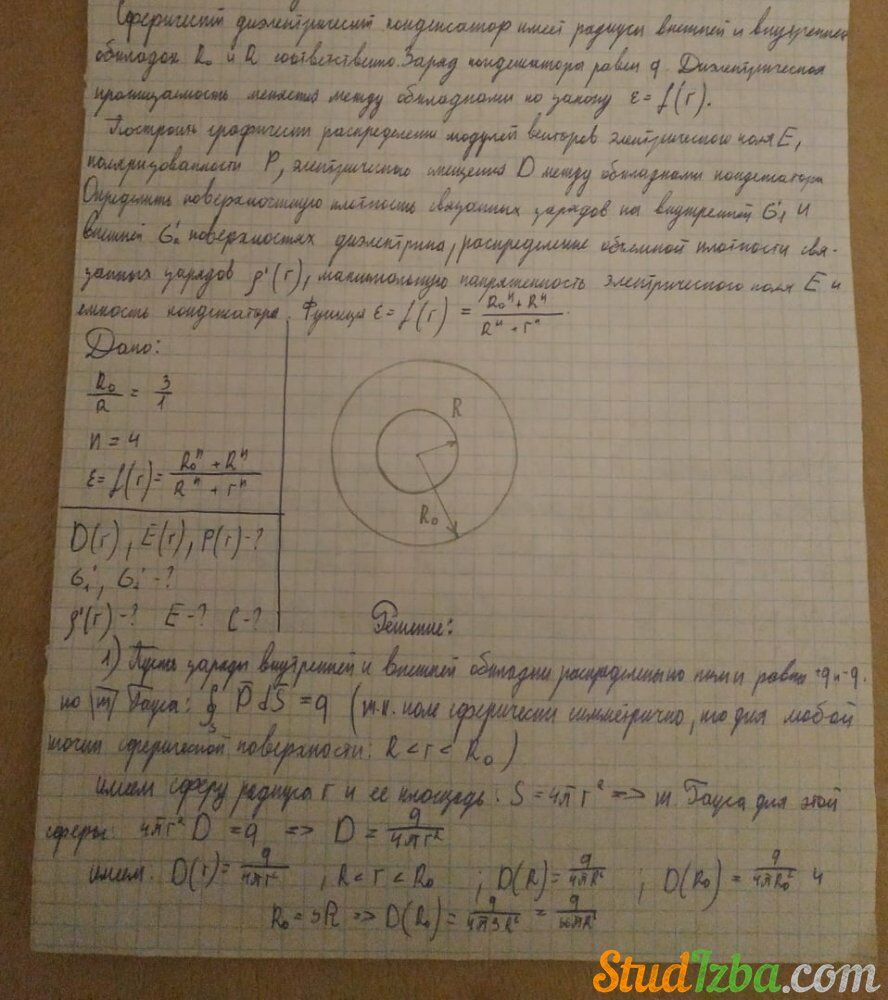 Сферический диэлектрический конденсатор имеет радиусы внешней и внутренней
обкладок R₀ и R соответственно. Заряд конденсатора равен q. Диэлектрическая
проницаемость меняется между обкладками по закону ε = f(r).
Построить графически распределения модулей векторов электрического поля E,
поляризованности P, электрического смещения D между обкладками конденсатора
Определить поверхностную плотность связанных зарядов на внутренней σ'₁ и
внешней σ'₂ поверхностях диэлектрика, распределение объемной плотности свя-
занных зарядов ρ'(r), максимальную напряженность электрического поля E и
емкость конденсатора. Функция ε = f(r) = (R₀ⁿ + Rⁿ)/(Rⁿ + rⁿ).
Дано:
R₀/R = 3/1
n = 4
ε = f(r) = (R₀ⁿ + Rⁿ)/(Rⁿ + rⁿ)
D(r), E(r), P(r) - ?
σ'₁, σ'₂ - ?
ρ'(r) - ? E - ? C - ?
R
R₀
Решение:
1) Пусть заряды внутренней и внешней обкладки распределены по ним равно
по |т| Гауса: ∮ₛ D̄ dS̄ = q (т.к. поле сферически симметрично, то для любой
точки сферической поверхности: R < r < R₀)
имеем сферу радиуса r и ее площадь: S = 4πr² => т. Гауса для этой
сферы: 4πr² D = q => D = q/4πr²
имеем: D(r) = q/4πr² ; R < r < R₀ ; D(R) = q/4πR² ; D(R₀) = q/4πR₀² и
R₀ = 3R => D(R₀) = q/4π3R² =
StudIzba.com